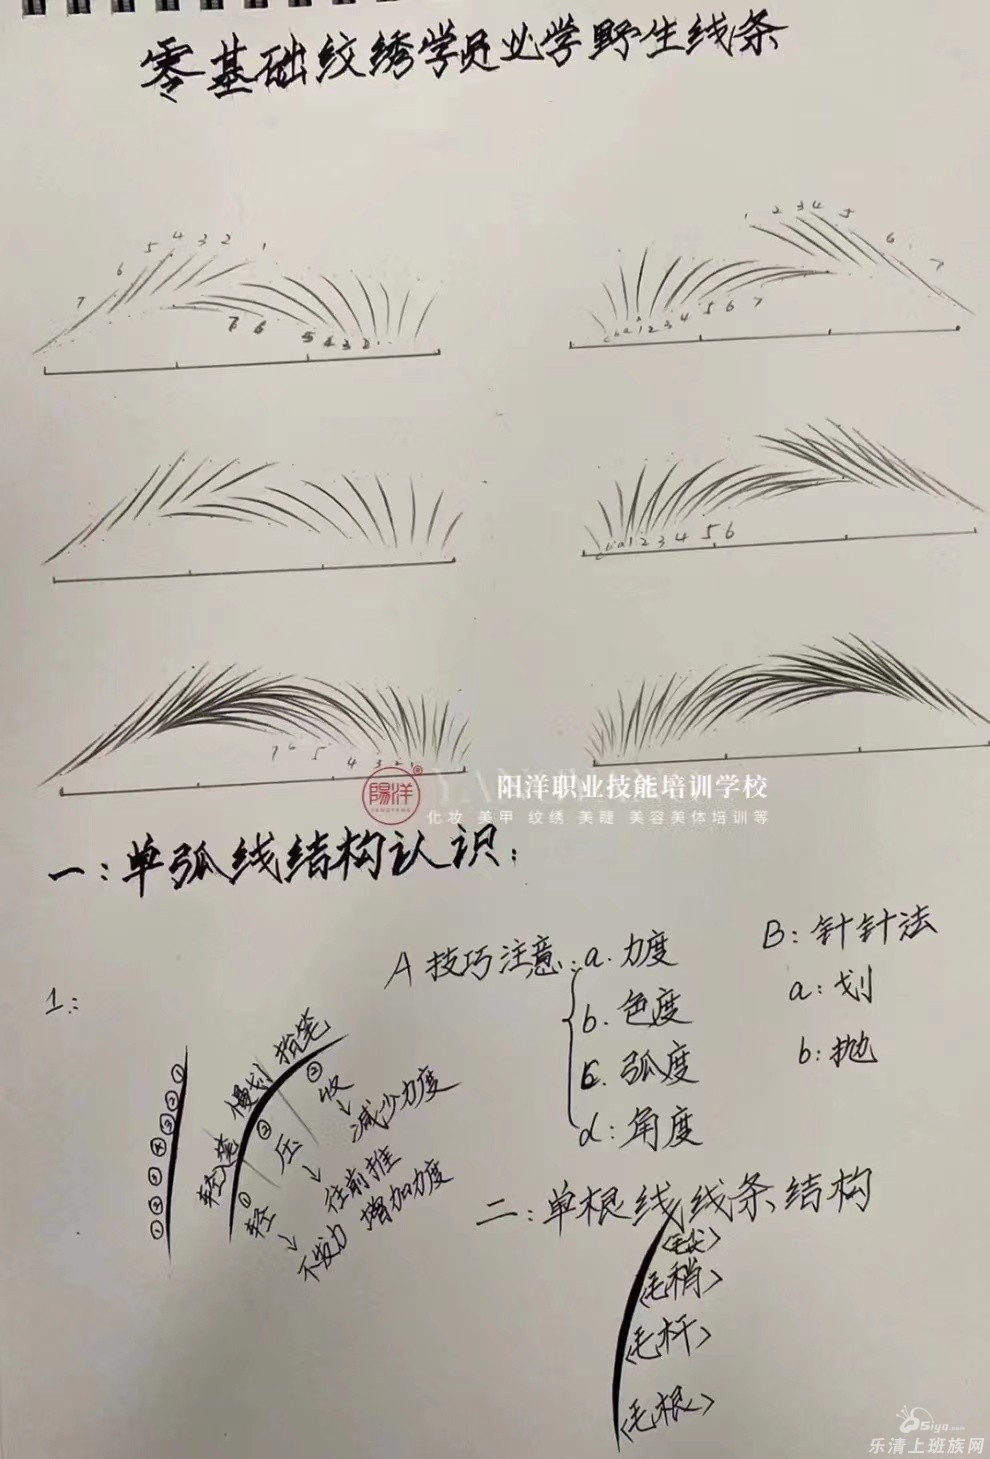 零基础纹绣学员必学野生线条
7 6 5 4 3 2 1
1 2 3 4 5 6 7
7 6 5 4 3 2
c b a 1 2 3 4 5 6 7
c b a 1 2 3 4 5 6
7 6 5 4 3 2 1
陽洋
YANGYANG
阳洋职业技能培训学校
化妆 美甲 纹绣 美睫 美容美体培训等
一：单弧线结构认识：
A 技巧注意：a. 力度
b. 色度
c. 弧度
d：角度
B：针针法
a：划
b：抛
1：
轻入笔 慢划 抬笔
① 轻 → 不发力
② 压 → 往前推 增加力度
③ 收 → 减少力度
二：单根线线条结构
<毛尖>
<毛稍>
<毛杆>
<毛根>
乐清上班族网